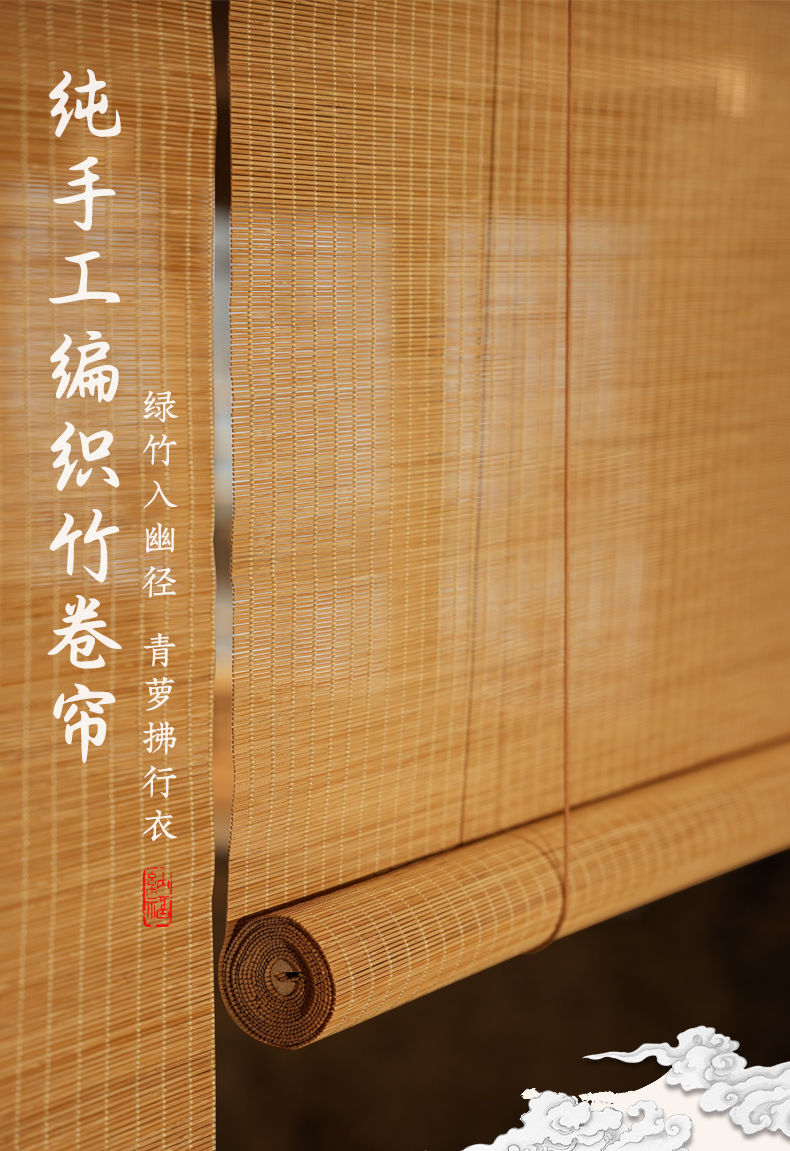 纯手工编织竹卷帘
绿竹入幽径 青萝拂行衣